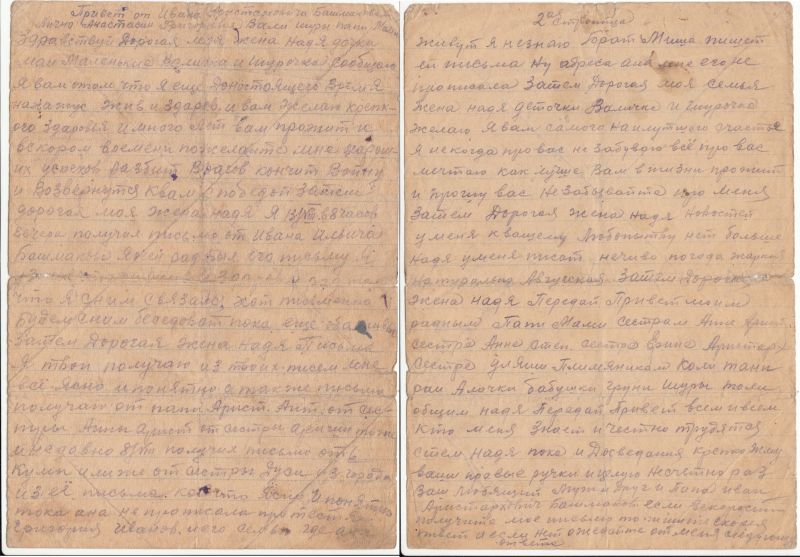 Привет от Ивана Аристарховича Башмакова
лично Анастасии Григорьевне Вали шуры папи Мами
Здравствуй Дорогая моя жена надя дочка
маи Маленькие Валичка и шурочка сообщаю
Я вам отом что я еще Донастоящего Время
нахажус жив и здаров и вам желаю крепк-
ого здаровья и много лет вам прожит и
вскором времени пожелайте мне хорош-
их успехов разбит Врагов кончит Войну
и возвернутся квам с победой Затем
дорогая моя жена надя Я 13/VIII в 8 часов
вечера получил письмо от Ивана Ильича
Башмакова Я ему рад был его письму
что я сним связался хот письменно
будем сним беседоват пока еще
Затем Дорогая жена надя Письма
Я твои получаю из твоих писем мне
всё Ясно и понятно а также письма
получаю от папи Арист. Ант. от сес
тры Анны Арист от сестры
и недавно 8/VIII получил письмо от
Кумы и также от сестры Дуси из города
из её письма кое что Ясно и понятно
тока ана не прописала про
Григория Иванов. иего семью где ани
2ая Страница
живут я незнаю брат Миша пишет
ей письма ну адреса ана мне его не
прописала Затем Дорогая моя семья
жена надя деточки Валичка и шурочка
желаю Я вам самого наилутшого счастья
Я некогда про вас не забуваю всё про вас
мечтаю как лутше Вам в жизни прожит
и прошу вас Незабывайте про меня
Затем Дорогая жена надя Новостей
у меня к вашему любопытву нет больше
надя уменя писат нечиво погода жаркая
натурально Августская Затем Дорогая
жена надя Передай Привет моим
радным Папи Мами сестрам Анне Арист.
сестра Анне Степ. сестре Арист.
сестре племяникам Коли тани
раи Алочки бабушки груни шуры толи
общим надя Передай Привет всем ивсем
кто меня знает и честно трудятся
стем надя пока и Досведания крепко жму
ваши правые ручки и целую несчетно раз
Ваш любящий Муж и Друг и Папа иван
Аристархович Башмаков если вскорости
получите мое письмо то пишите
ответ а если нет ожедайте от меня следующ
ответа